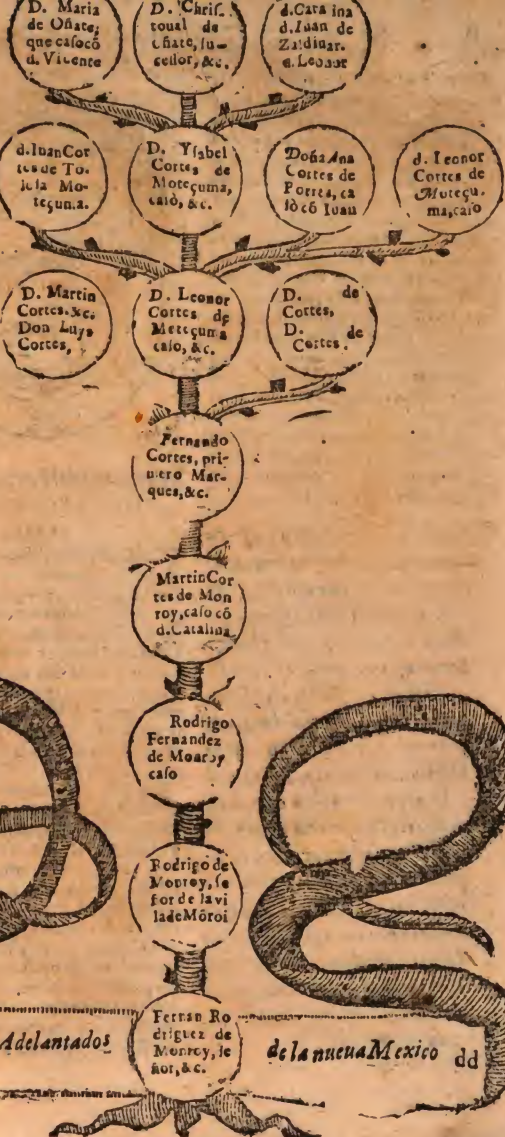 D. Maria
de Oñate,
que casocō
d. Vicente
D. Chris-
toual de
Oñate, su-
cessor, &c.
d. Cata ina
d. Iuan de
Zaldiuar.
d. Leonor
d. Iuan Cor
tes de To-
Mo-
teçuma.
D. Ysabel
Cortes de
Moteçuma,
casò, &c.
Doña Ana
Cortes de
Porres, ca
sò cō Iuan
d. Leonor
Cortes de
Moteçu-
ma, caso
D. Martin
Cortes. &c.
Don Luys
Cortes,
D. Leonor
Cortes de
Moteçuma
caso, &c.
D. de
Cortes,
D. de
Cortes.
Fernando
Cortes, pri-
mero Mar-
ques, &c.
Martin Cor
tes de Mon
roy, caso cō
d. Catalina
Rodrigo
Fernandez
de Monroy
caso
Rodrigo de
Monroy, se
ñor de la vi
lla de Mōroi
Fernan Ro
driguez de
Monroy, se
ñor, &c.
Adelantados
de la nueua Mexico dd